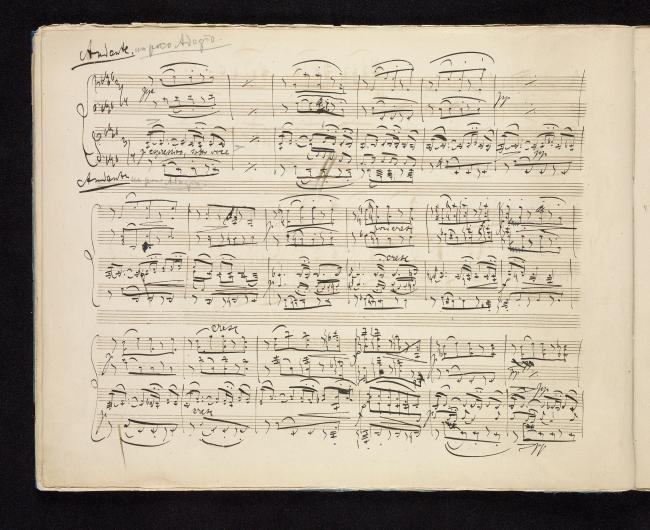 Andante. un poco Adagio.
espressivo, sotto voce
Andante un poco Adagio.
poco cresc
cresc
cresc
cresc
pp